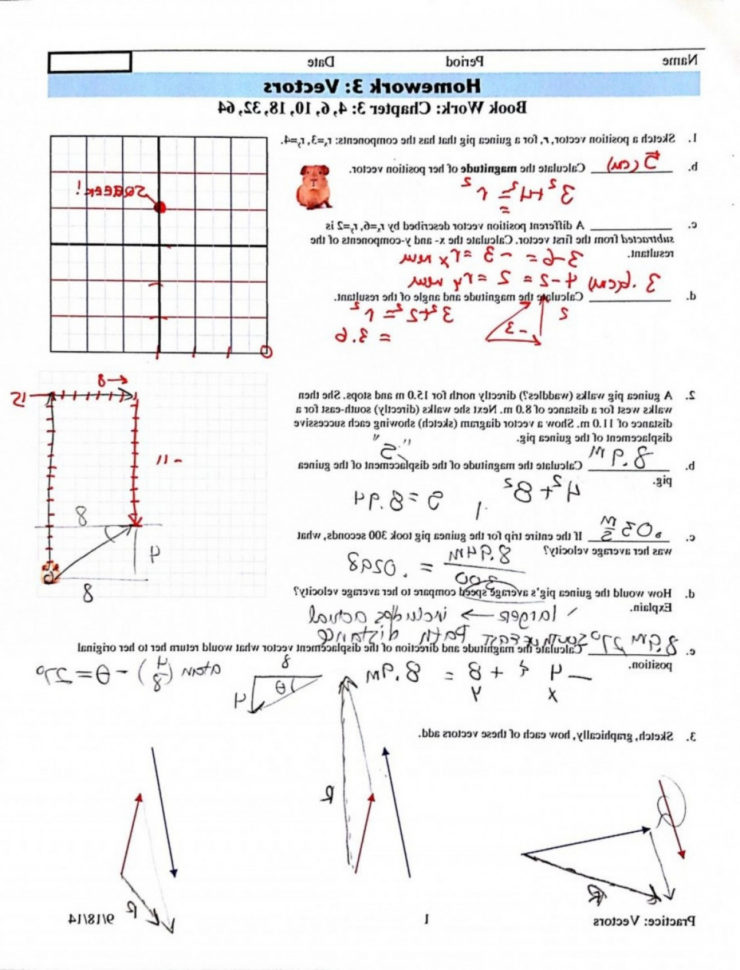 Name Period Date
Homework 3: Vectors
Book Work: Chapter 3: 4, 6, 10, 18, 32, 64
1. Sketch a position vector, r, for a guinea pig that has the components: rₓ=3, rᵧ=4.
SQUEEK!
b. 5 (cm) Calculate the magnitude of her position vector.
3² + 4² = r²
=
c. A different position vector described by rₓ=6, rᵧ=2 is
subtracted from the first vector. Calculate the x- and y-components of the
resultant.
3-6 = -3 = rx new
4-2 = 2 = ry new
d. 3.6(cm) Calculate the magnitude and angle of the resultant.
3² + 2² = r²
= 3.6
-3
2
2. A guinea pig walks (waddles?) directly north for 15.0 m and stops. She then
walks west for a distance of 8.0 m. Next she walks (directly) south-east for a
distance of 11.0 m. Show a vector diagram (sketch) showing each successive
displacement of the guinea pig.
"S"
8
15
-11
8
4
8
b. 8.9 m Calculate the magnitude of the displacement of the guinea
pig.
4² + 8²
= 8.94
c. .03 m/s If the entire trip for the guinea pig took 300 seconds, what
was her average velocity?
8.94m
300
= .0298
d. How would the guinea pig's average speed compare to her average velocity?
Explain.
larger → includes actual
path distance
e. 8.9m 27° SOUTHEAST Calculate the magnitude and direction of the displacement vector what would return her to her original
position.
= 8.9m
x y
8
θ
4
atan (4/8) - θ = 27°
3. Sketch, graphically, how each of these vectors add.
R
R
R
Practice: Vectors 1 9/18/14